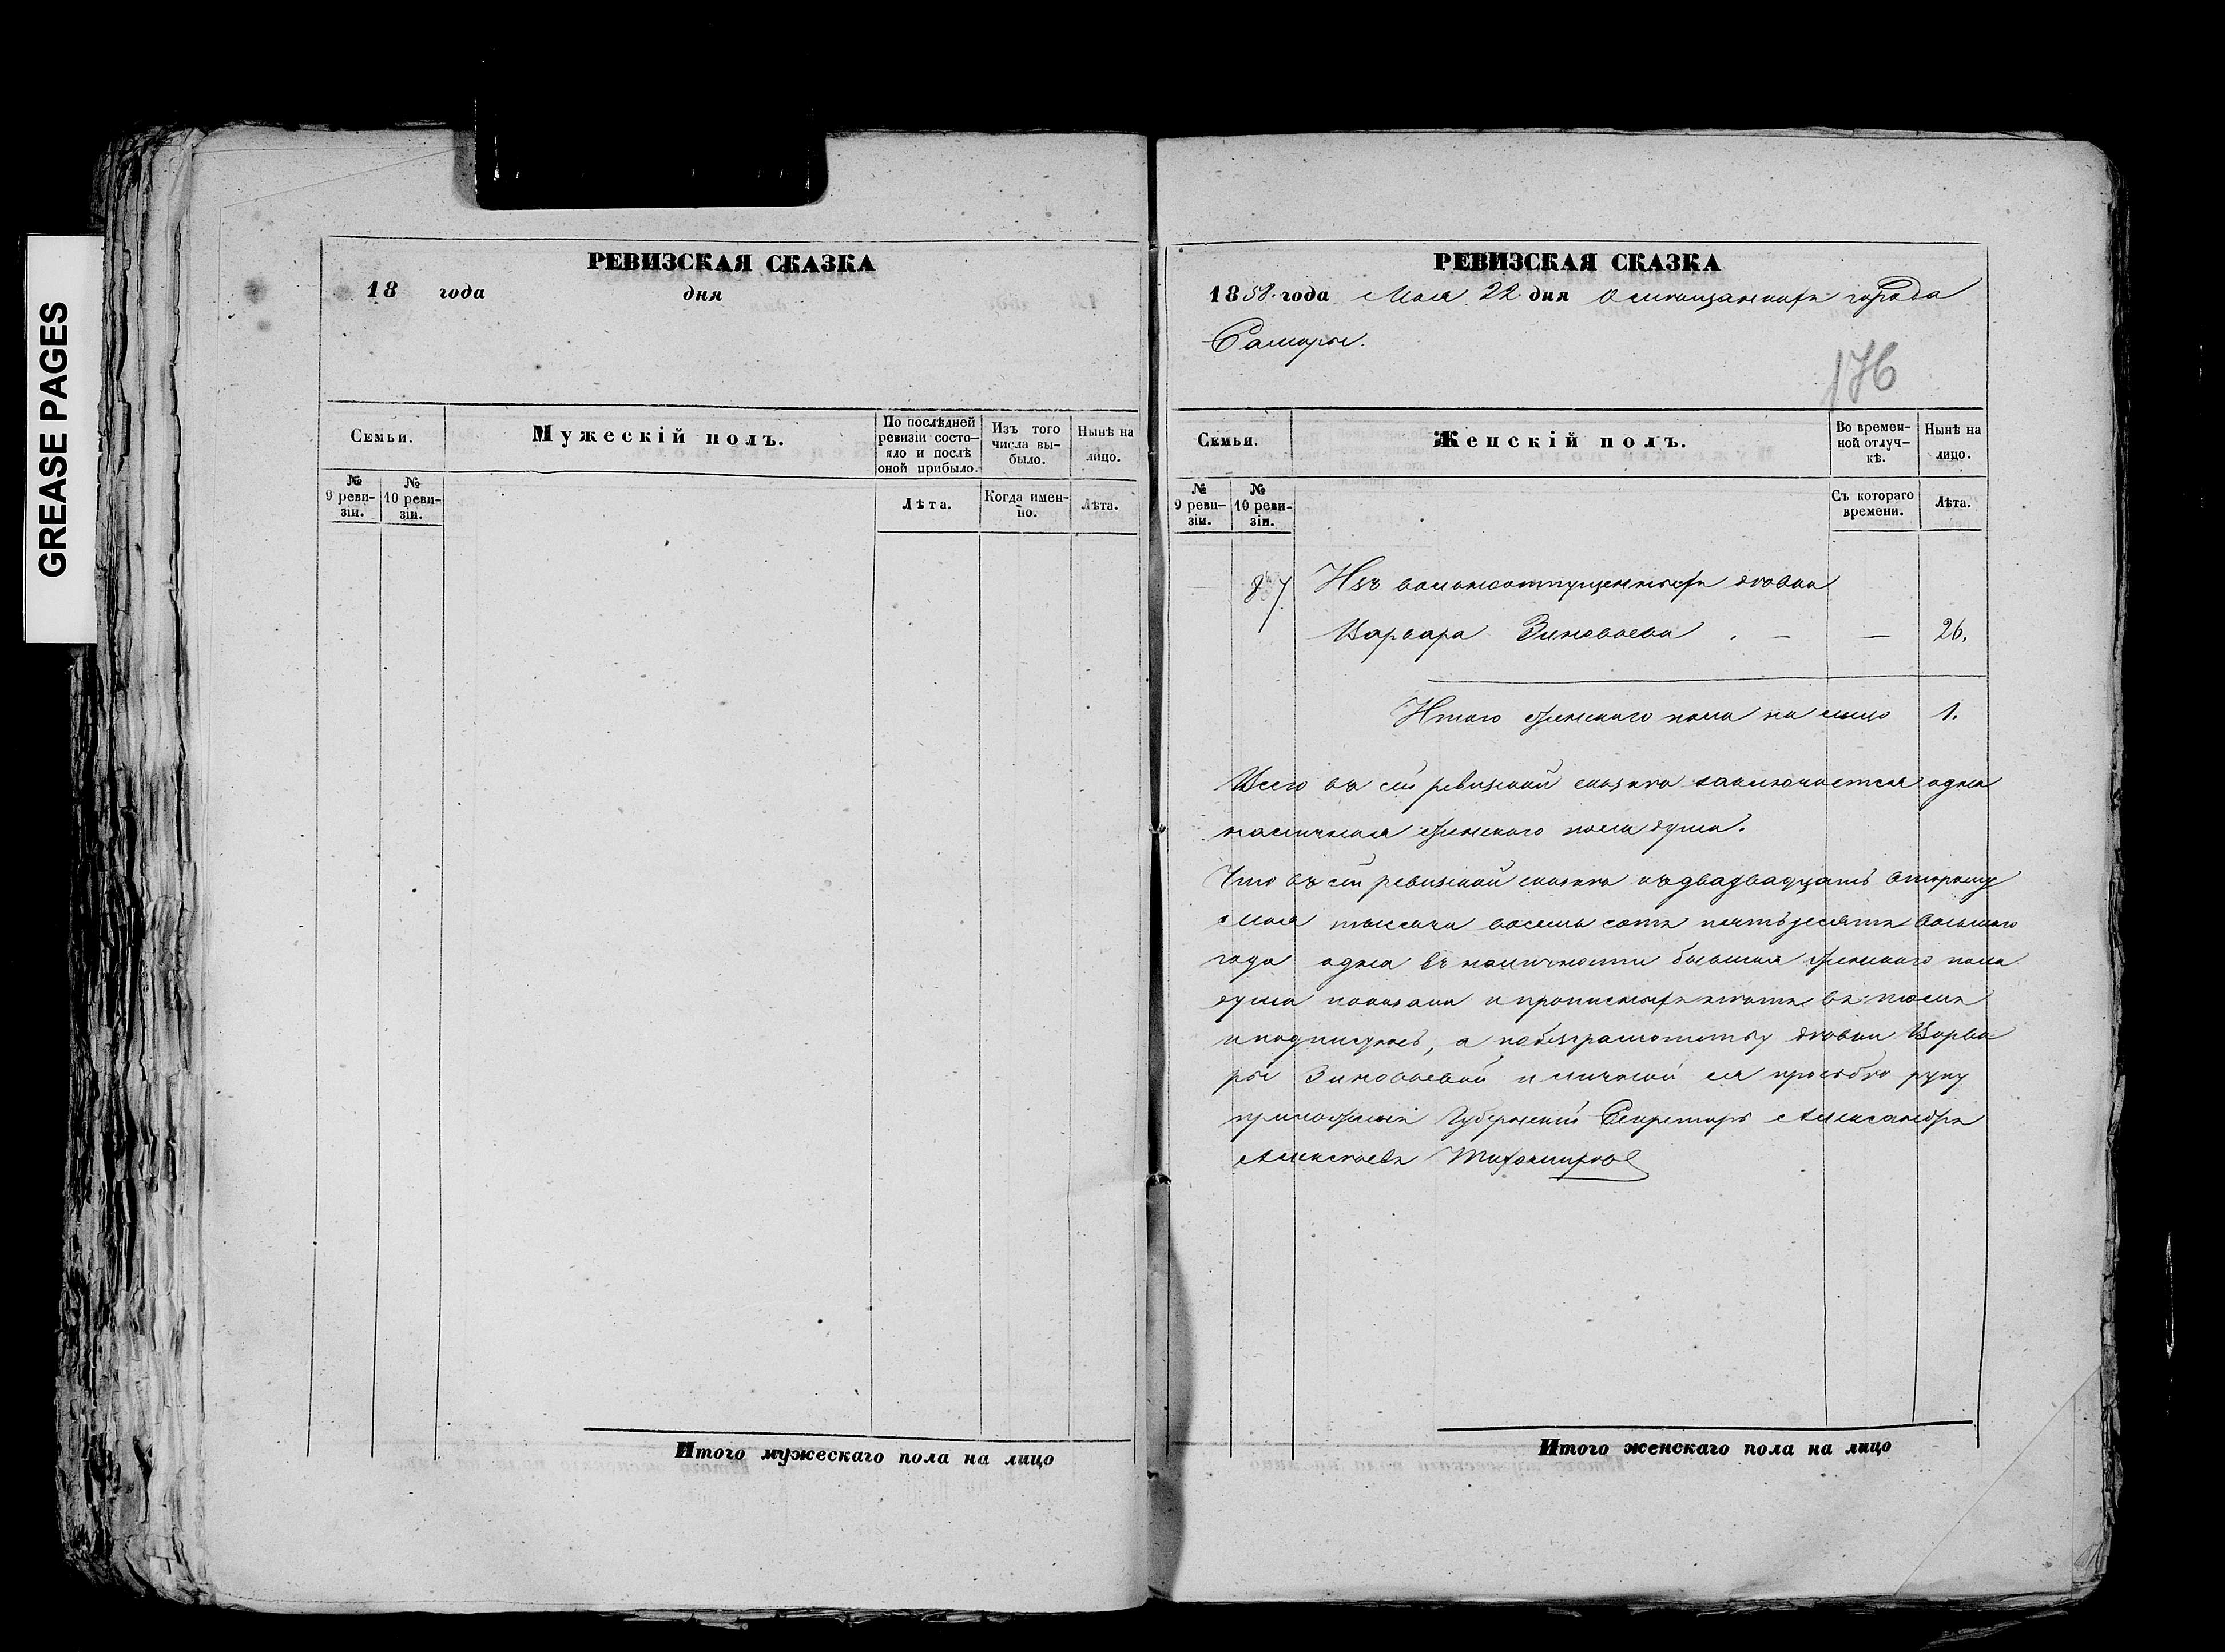 GREASE PAGES
РЕВИЗСКАЯ СКАЗКА
18 года дня
Семьи.
Мужескій полъ.
По послѣдней ревизіи состояло и послѣ оной прибыло.
Изъ того числа выбыло.
Нынѣ на лицо.
№ 9 ревизіи.
№ 10 ревизіи.
Лѣта.
Когда именно.
Лѣта.
Итого мужескаго пола на лицо
РЕВИЗСКАЯ СКАЗКА
1858. года Мая 22 дня О мещанахъ города
Самары.
176
Семьи.
Женскій полъ.
Во временной отлучкѣ.
Нынѣ на лицо.
№ 9 ревизіи.
№ 10 ревизіи.
Съ котораго времени.
Лѣта.
87 Изъ вольноотпущенныхъ дѣвка
Варвара Зиновьева . — — 26.
Итого женскаго пола на лицо 1.
Всего въ сей ревизской сказкѣ заключается одна
наличная женскаго пола душа.
Что въ сей ревизской сказкѣ къ двадвадцать второму
Мая тысяча восемь сотъ пятьдесятъ восьмаго
года одна въ наличности бывшая женскаго пола
душа показана и прописныхъ нѣтъ, въ томъ
и подписуюсь, а по безграмотству дѣвки Варва
ры Зиновьевой и личной ея просьбѣ руку
приложилъ Губернскій Секретарь Александръ
Алексѣевъ Тихомировъ
Итого женскаго пола на лицо